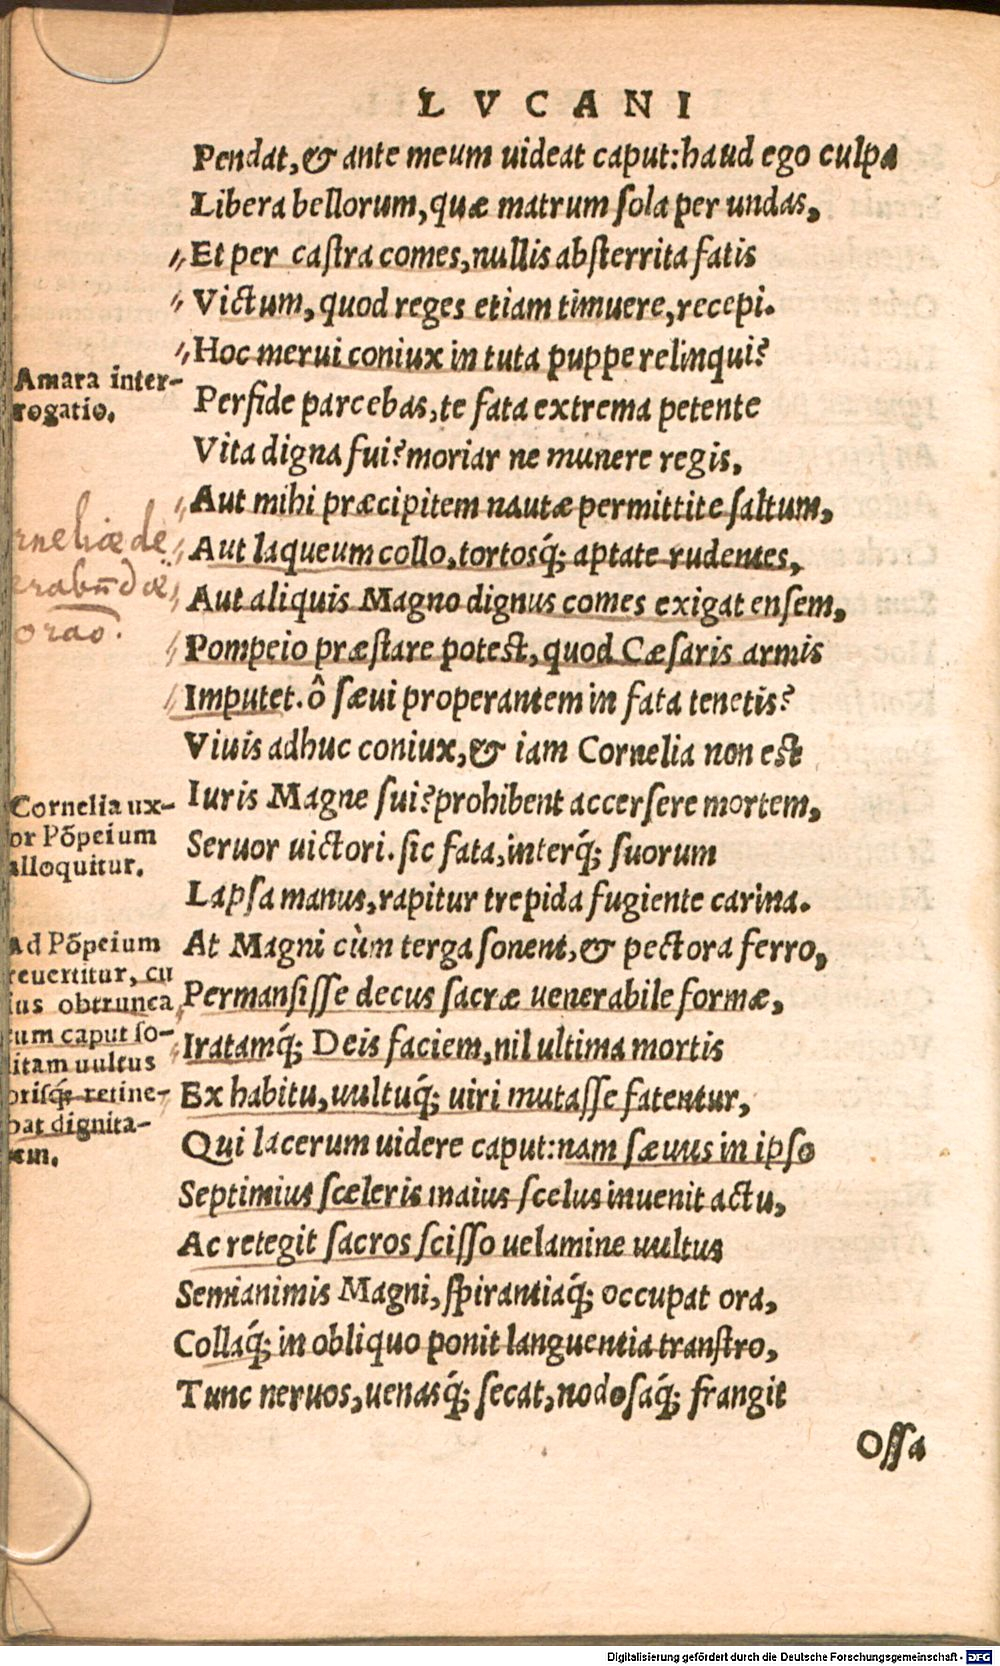 LVCANI
Pendat, & ante meum uideat caput: haud ego culpa
Libera bellorum, quæ matrum ſola per undas,
Et per caſtra comes, nullis abſterrita fatis
Victum, quod reges etiam timuere, recepi.
Hoc merui coniux in tuta puppe relinqui?
Amara inter-
rogatio.
Perfide parcebas, te fata extrema petente
Vita digna fui? moriar ne munere regis.
Aut mihi præcipitem nautæ permittite ſaltum,
Aut laqueum collo, tortosq́; aptate rudentes,
Aut aliquis Magno dignus comes exigat enſem,
rneliæ de
orao.
Pompeio præſtare poteſt, quod Cæſaris armis
Imputet. ô ſæui properantem in fata tenetis?
Viuis adhuc coniux, & iam Cornelia non eſt
Iuris Magne ſui? prohibent accerſere mortem,
Cornelia ux-
or Põpeium
alloquitur.
Seruor uictori. ſic fata, interq́; ſuorum
Lapſa manus, rapitur trepida fugiente carina.
At Magni cùm terga ſonent, & pectora ferro,
Permanſiſſe decus ſacræ uenerabile formæ,
Iratamq́; Deis faciem, nil ultima mortis
Ad Põpeium
reuertitur, cu
ius obtrunca
tum caput ſo-
litam uultus
priſq́; retine-
bat dignita-
tem.
Ex habitu, uultuq́; uiri mutaſſe fatentur,
Qui lacerum uidere caput: nam ſæuus in ipſo
Septimius ſcæleris maius ſcelus inuenit actu,
Ac retegit ſacros ſciſſo uelamine uultus
Semianimis Magni, ſpirantiaq́; occupat ora,
Collaq́; in obliquo ponit languentia tranſtro,
Tunc neruos, uenasq́; ſecat, nodoſaq́; frangit
Oſſa
Digitalisierung gefördert durch die Deutsche Forschungsgemeinschaft - DFG